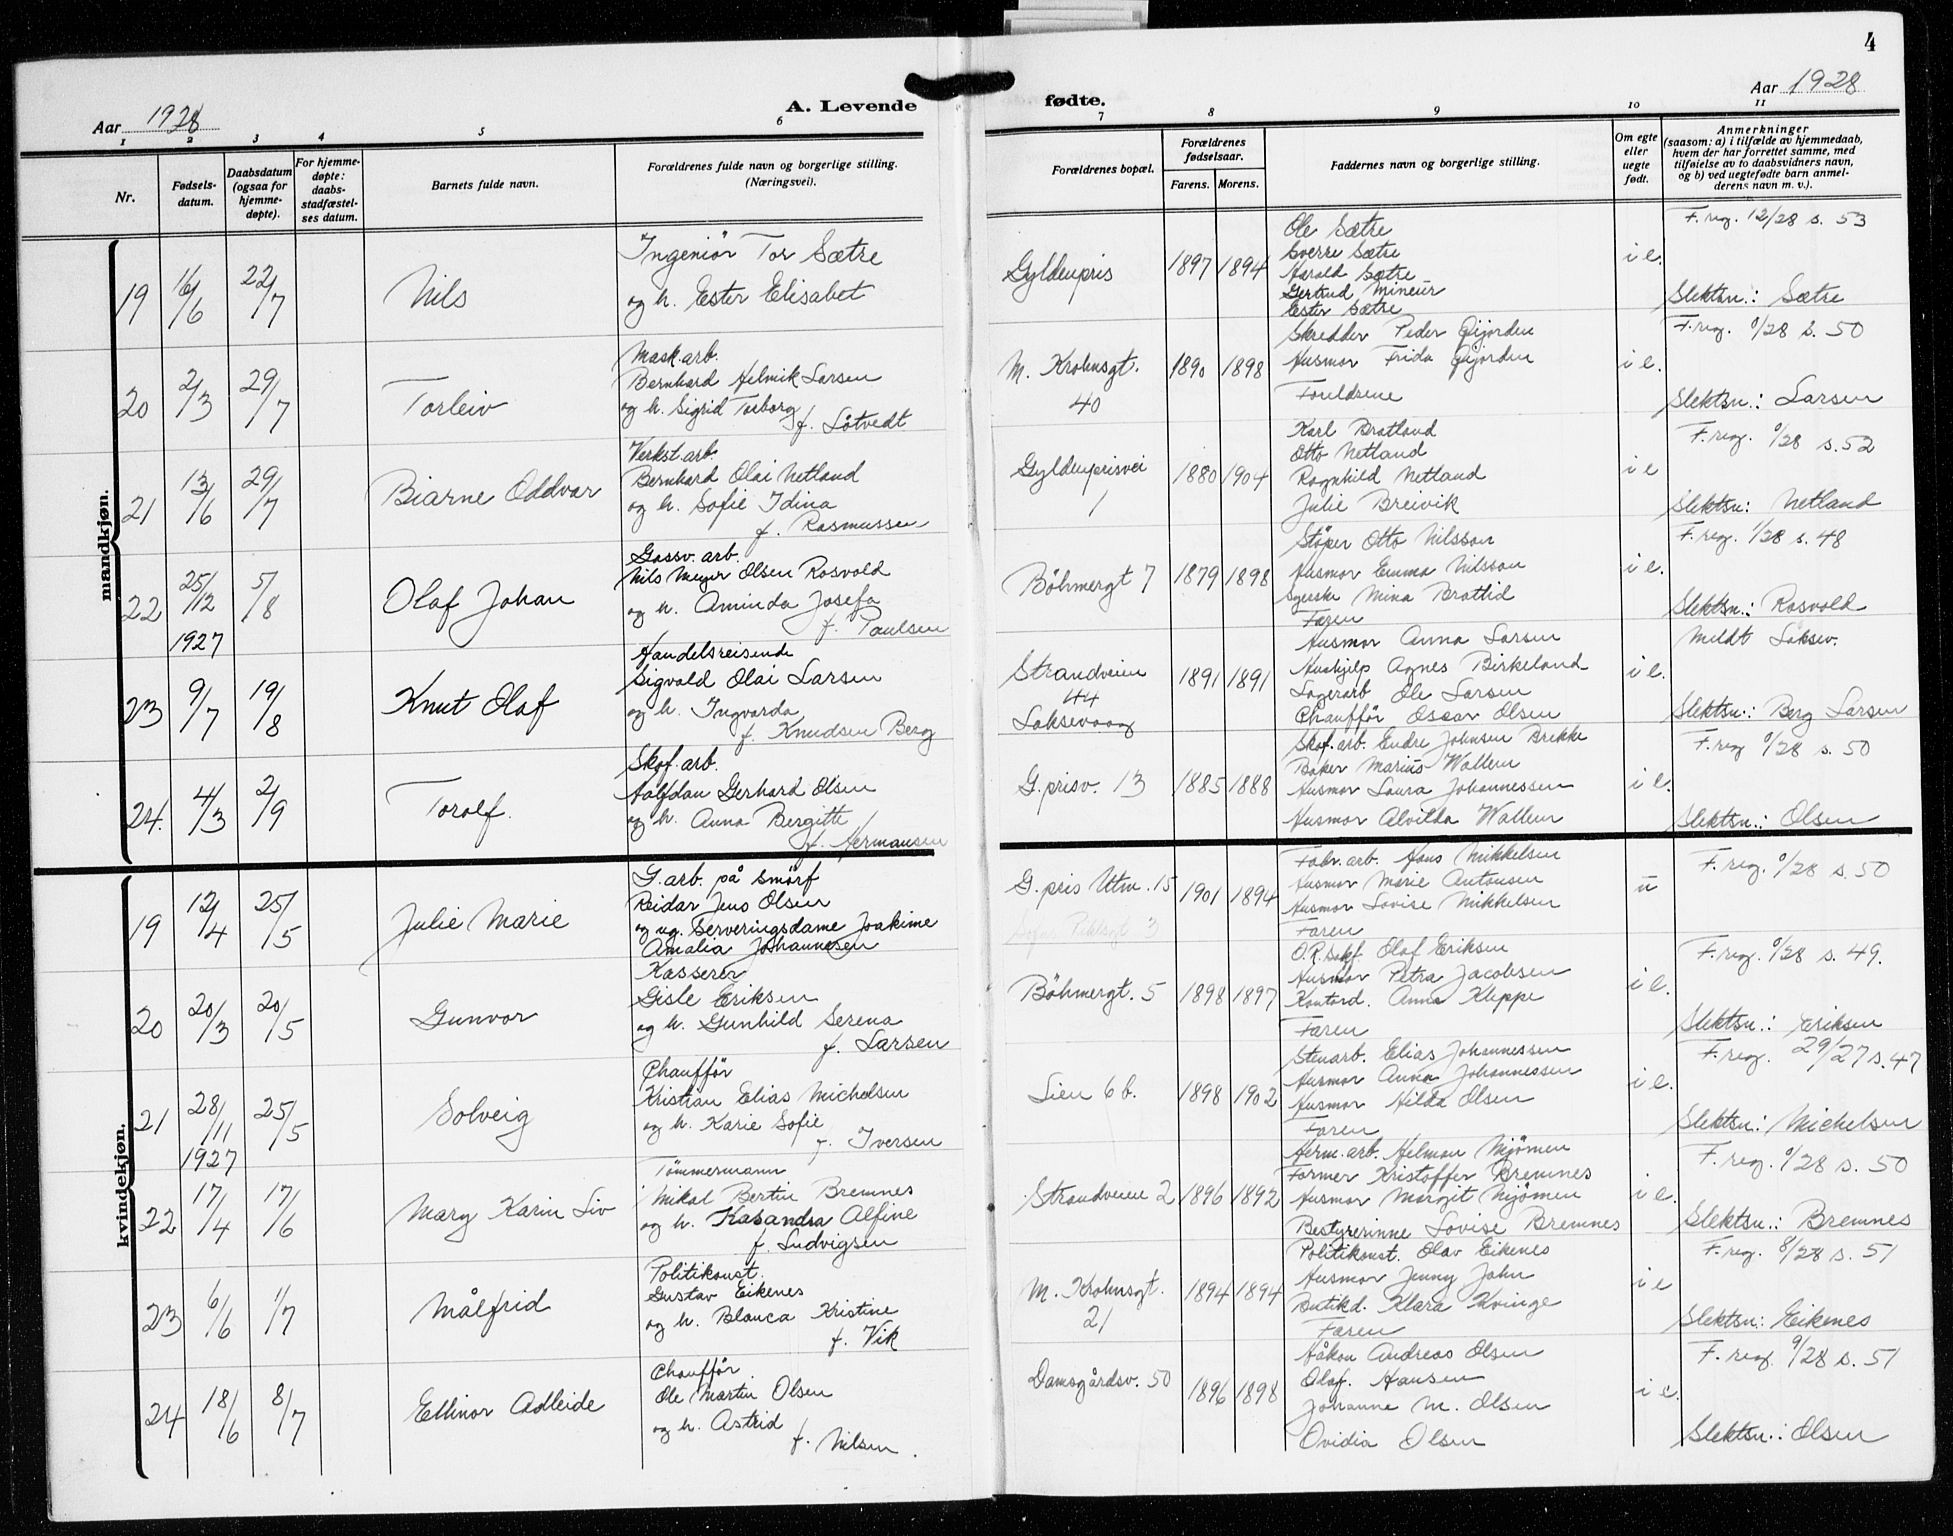 4
Aar 1928
A. Levende
fødte.
Aar 1928
1 2 3 4 5 6 7 8 9 10 11
Nr.
Fødsels-
datum.
Daabsdatum
(ogsaa for
hjemme-
døpte).
For hjemme-
døpte:
daabs-
stadfæstel-
ses datum.
Barnets fulde navn.
Forældrenes fulde navn og borgerlige stilling.
(Næringsvei).
Forældrenes bopæl.
Forældrenes
fødselsaar.
Farens. Morens.
Faddernes navn og borgerlige stilling.
Om egte
eller
uegte
født.
Anmerkninger
(saasom: a) i tilfælde av hjemmedaab,
hvem der har forrettet samme, med
tilføielse av to daabsvidners navn,
og b) ved uegtefødte barn anmel-
derens navn m. v.).
mandkjøn.
19 16/6 22/7 Nils
Ingeniør Tor Sætre
og h. Ester Elisabet
Gyldenpris 1897 1894
Ole Sætre
Sverre Sætre
Harald Sætre
Gertrud Mineur
Ester Sætre
i e.
F. reg. 12/28 s. 53
Slektsn.: Sætre
20 2/3 29/7 Torleiv
Mask.arb.
Bernhard Helmik Larsen
og h. Sigrid Torborg
f. Låtvedt
M. Krohnsgt.
40
1890 1898
Skredder Peder Gijorden
Husmor Frida Gijorden
Foreldrene
i e.
F. reg. 0/28 s. 50
Slektsn.: Larsen
21 13/6 29/7 Biarne Oddvar
Verkst.arb.
Bernhard Olai Netland
og h. Sofie Idina
f. Rasmussen
Gyldenprisvei
1
1880 1904
Karl Bratland
Otto Netland
Ragnhild Netland
Julie Breivik
i e
F. reg. 0/28 s. 52
Slektsn: Netland
22 25/12 1927 5/8 Olaf Johan
Gassv. arb.
Nils Meyer Olsen Rosvold
og h. Aminda Josefa
f. Paulsen
Böhmergt 7 1879 1898
Støper Otto Nilsson
Husmor Emma Nilsson
Syerske Mina Brattlid
Faren
i e.
F. reg. 1/28 s. 48
Slektsn.: Rosvold
23 9/7 19/8 Knut Olaf
Handelsreisende
Sigvald Olai Larsen
og h. Ingvarda
f. Knudsen Berg
Strandveien
44
Laksevaag
1891 1891
Husmor Anna Larsen
Hushjelp Agnes Birkeland
Lagerarb Ole Larsen
Chauffør Oscar Olsen
i e.
Meldt Laksev.
Slektsn.: Berg Larsen
24. 4/3 2/9 Torolf.
Skof. arb.
Halfdan Gerhard Olsen
og h. Anna Bergitte
f. Hermansen
G. prisv. 13 1885 1888
Skof. arb. Endre Johnsen Brekke
Baker Marius Wallem
Husmor Laura Johannessen
Husmor Alvilda Wallem
i e.
F. reg 0/28 s. 50
Slektsn.: Olsen
kvindekjøn.
19 12/4 25/5 Julie Marie
G. arb. på smörf
Reidar Jens Olsen
og ug. Serveringsdame Joakime
Amalia Johannesen
G. pris Utm. 15 1901 1894
3
Fabr. arb. Hans Mikkelsen
Husmor Marie Antonsen
Husmor Lovise Mikkelsen
Faren
u
F. reg. 0/28 s. 50
20 20/3 20/5 Gunvor
Kasserer
Gisle Eriksen
og h. Gunhild Serena
f. Larsen
Böhmergt. 5 1898 1897
O.R.sakf. Olaf Eriksen
Husmor Petra Jacobsen
Kontord. Anna Kleppe
Faren
i e.
F. reg. 0/28 s. 49.
Slektsn.: Eriksen
21 28/11 1927 25/5 Solveig
Chauffør
Kristian Elias Michelsen
og h. Karie Sofie
f. Iversen
Lien 6 b. 1898 1902
Stenarb. Elias Johannessen
Husmor Anna Johannessen
Husmor Hilda Olsen
Faren
i e.
F. reg. 29/27 s. 47
Slektsn: Michelsen
22 17/4 17/6 Mary Karin Liv
Tømmermann
Mikal Bertin Bremnes
og h. Kasandra Alfine
f. Ludvigsen
Strandveien 2 1896 1892
Herm. arb. Helman Mjømen
Former Kristoffer Bremnes
Husmor Margit Mjømen
Bestyrerinne Lovise Bremnes
i e.
F. reg. 0/28 s. 50
Slektsn.: Bremnes
23 6/6 1/7 Målfrid
Politikonst.
Gustav Eikenes
og h. Blanca Kristine
f. Vik
M. Krohnsgt.
21
1894 1894
Politikonst. Olav Eikenes
Husmor Jenny John
Butikd. Klara Kvinge
Faren
i e
F. reg. 8/28 s. 51
Slektsn: Eikenes
24 18/6 8/7 Ellinor Adleide
Chauffør
Ole Martin Olsen
og h. Astrid
f. Nilsen.
Damsgårdsv. 50 1896 1898
Håkon Andreas Olsen
Olaf. Hansen
Johanne M. Olsen
Ovidia Olsen
i e.
F. reg. 9/28 s. 51
Slektsn.: Olsen